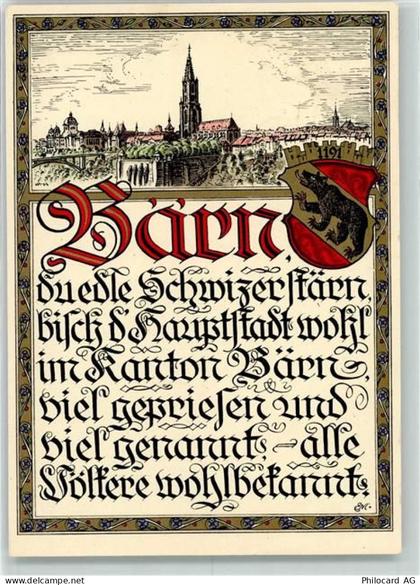 191
Bärn,
du edle Schwizerstärn,
bisch d'Hauptstadt wohl
im Kanton Bärn,
viel gepriesen und
viel genannt, – alle
Völkere wohlbekannt.
www.delcampe.net
Philocard AG